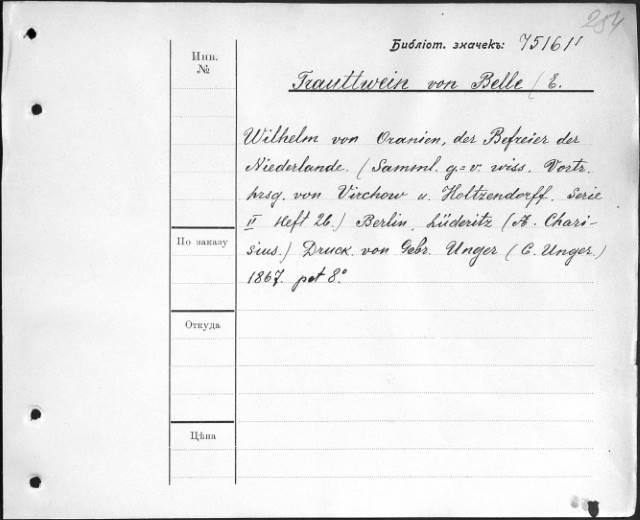 284
Библіот. значекъ: 75161 II
Инв.
№
Trauttwein von Belle (E.
Wilhelm von Oranien, der Befreier der
Niederlande. (Samml. g.=v. wiss. Vortr.
hrsg. von Virchow u. Holtzendorff. Serie
II Heft 26.) Berlin, Lüderitz (A. Chari-
sius.) Druck von Gebr. Unger (C. Unger.)
1867. pet 8°.
По заказу
Откуда
Цѣна